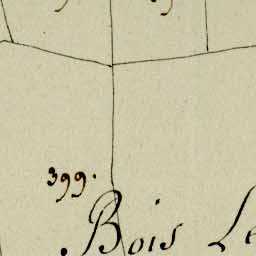 399.
Bois Le